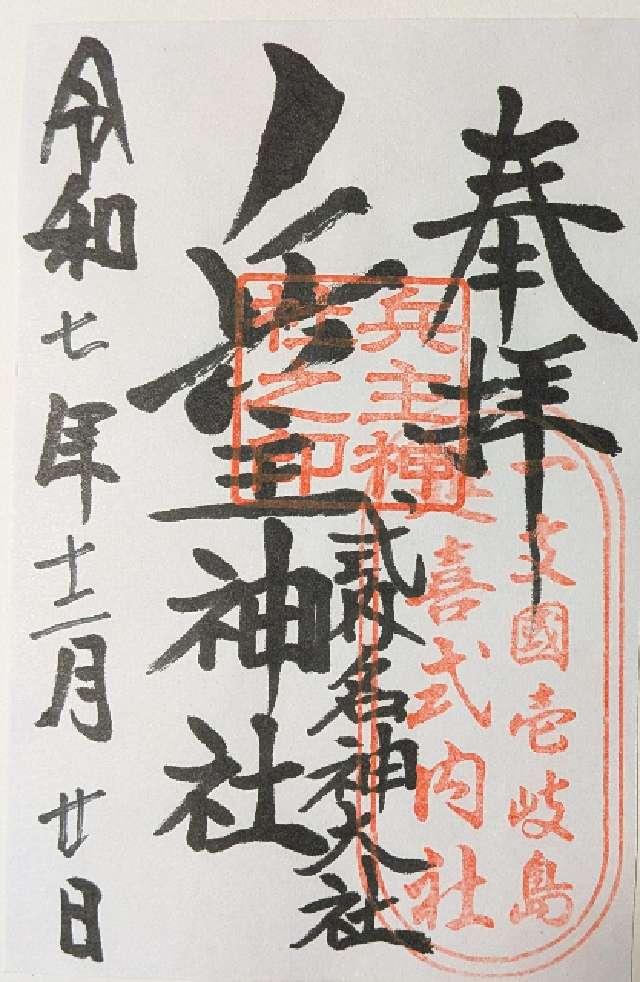 奉拝
一支國壱岐島
延喜式内社
式内名神大社
兵主神社
兵主神
社之印
令和七年十二月廿日